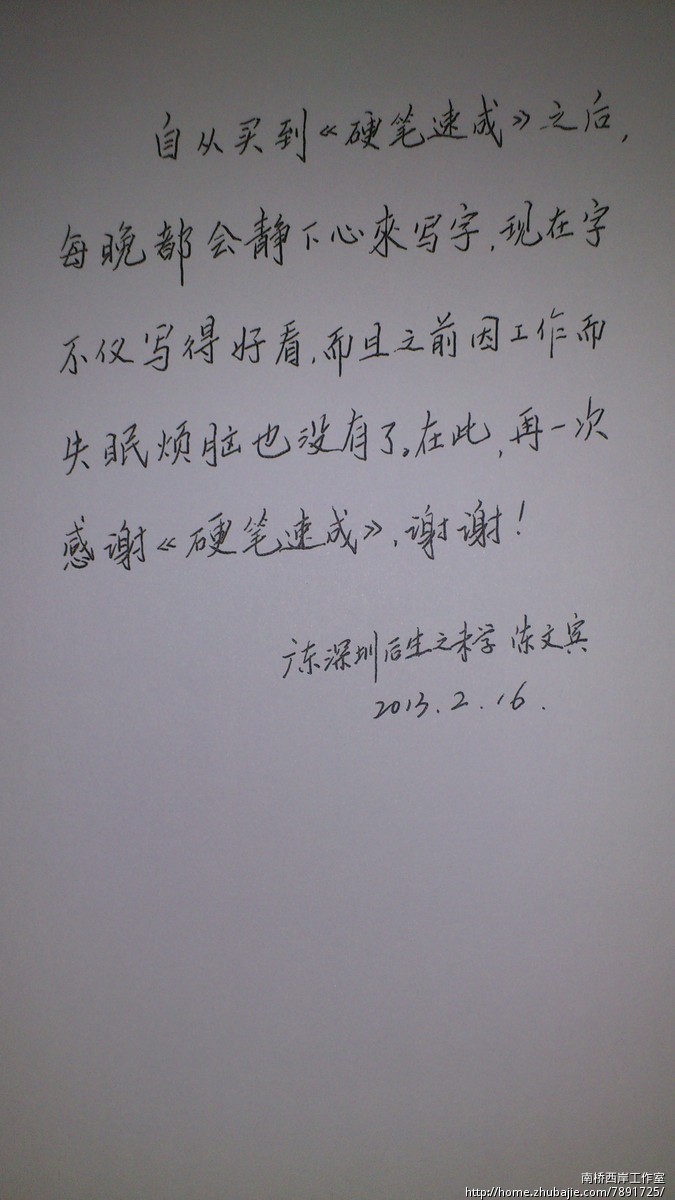 自从买到《硬笔速成》之后,
每晚都会静下心來写字,现在字
不仅写得好看,而且之前因工作而
失眠烦脑也没有了。在此,再一次
感谢《硬笔速成》,谢谢!
广东深圳后生之未学 陈文宾
2013.2.16.
南桥西岸工作室
http://home.zhubajie.com/7891725/